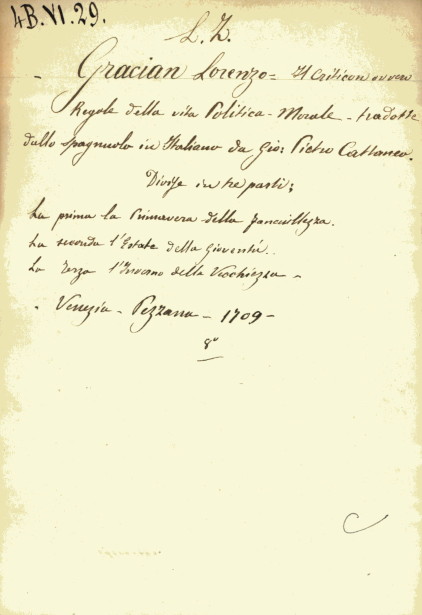 4B.VI.29.
L.Z.
- Gracian Lorenzo = Il Criticon ovvero
Regole della vita Politica - Morale - tradotte
dallo spagnuolo in Italiano da Gio: Pietro Cattaneo.
Divise in tre parti;
La prima la Primavera della Fanciullezza.
La seconda l'Estate della Gioventù.
La Terza l'Inverno della Vecchiezza -
. Venezia - Pezzana - 1709 -
8º
C